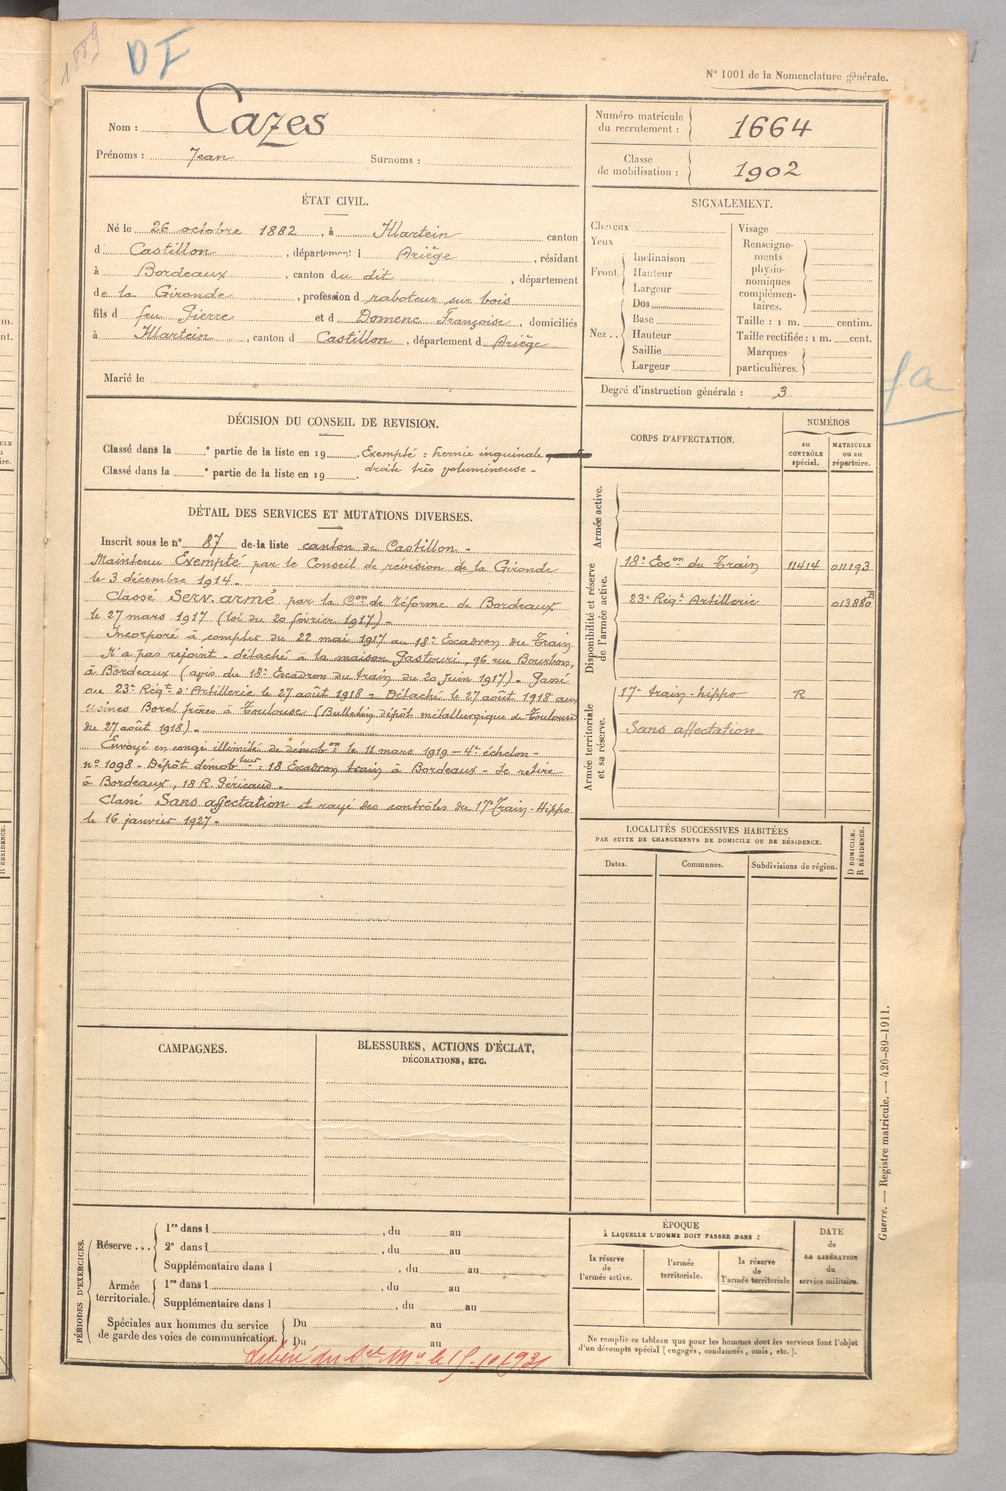 1889
DF
N° 1001 de la Nomenclature générale.
Nom : Cazes
Prénoms : Jean Surnoms :
Numéro matricule du recrutement : 1664
Classe de mobilisation : 1902
ÉTAT CIVIL.
Né le 26 octobre 1882, à Illartein canton
d Castillon, département d Ariège, résidant
à Bordeaux, canton du dit, département
de la Gironde, profession d raboteur sur bois
fils d feu Pierre et d Domenc Françoise, domiciliés
à Illartein, canton d Castillon, département d Ariège
Marié le
SIGNALEMENT.
Cheveux
Yeux
Front. Inclinaison
Hauteur
Largeur
Nez.. Dos
Base
Hauteur
Saillie
Largeur
Visage
Renseigne-
ments
physio-
nomiques
complémen-
taires.
Taille : 1 m. centim.
Taille rectifiée : 1 m. cent.
Marques
particulières.
Degré d'instruction générale : 3
fa
DÉCISION DU CONSEIL DE REVISION.
Classé dans la e partie de la liste en 19 . Exempté : hernie inguinale
Classé dans la e partie de la liste en 19 . droite très volumineuse -
DÉTAIL DES SERVICES ET MUTATIONS DIVERSES.
Inscrit sous le n° 87 de la liste canton de Castillon -
Maintenu Exempté par le Conseil de revision de la Gironde
le 3 décembre 1914 -
Classé Serv. armé par la Con de réforme de Bordeaux
le 27 mars 1917 (loi du 20 février 1917) -
Incorporé à compter du 22 mai 1917 au 18e Escadron du Train
N'a pas rejoint - détaché à la maison Pastouri, 96 rue Bourbon,
à Bordeaux (avis du 18e Escadron du train du 20 juin 1917) - Passé
au 23e Régt d'Artillerie le 27 août 1918 - Détaché le 27 août 1918 aux
usines Borel frères à Toulouse (Bulletin dépôt métallurgique de Toulouse
du 27 août 1918) -
Envoyé en congé illimité de démobon le 11 mars 1919 - 4e échelon -
n° 1098 - Dépôt démobteur : 18 Escadron train à Bordeaux - se retire
à Bordeaux, 18 R. Géricaud -
Classé Sans affectation et rayé des contrôles du 17e Train-Hippo
le 16 janvier 1927 -
CORPS D'AFFECTATION.
NUMÉROS
au CONTRÔLE spécial.
MATRICULE ou au répertoire.
Armée active.
Disponibilité et réserve de l'armée active.
18e Escon du Train 11414 011193
23e Régt Artillerie 013880
Armée territoriale et sa réserve.
17e train-hippo R
Sans affectation
LOCALITÉS SUCCESSIVES HABITÉES
PAR SUITE DE CHANGEMENTS DE DOMICILE OU DE RÉSIDENCE.
Dates. Communes. Subdivisions de région.
D DOMICILE.
R RÉSIDENCE.
CAMPAGNES.
BLESSURES, ACTIONS D'ÉCLAT,
DÉCORATIONS, ETC.
PÉRIODES D'EXERCICES.
Réserve ... 1re dans l , du au
2e dans l , du au
Supplémentaire dans l , du au
Armée territoriale. 1re dans l , du au
Supplémentaire dans l , du au
Spéciales aux hommes du service
de garde des voies de communication. Du au
Du au
Libéré du Sce Mre le 15-10 1931
ÉPOQUE
À LAQUELLE L'HOMME DOIT PASSER DANS :
la réserve de l'armée active.
l'armée territoriale.
la réserve de l'armée territoriale
DATE de LA LIBÉRATION du service militaire.
Ne remplir ce tableau que pour les hommes dont les services font l'objet
d'un décompte spécial (engagés, condamnés, omis, etc.).
Guerre. — Registre matricule. — 426-89-1911.